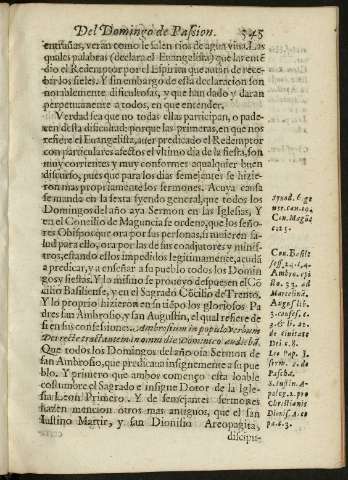 Del Domingo de Passion. 545
entrañas, verán como le salen rios de agua viua. Las
quales palabras (declara el Euangelista) que las enté
dio el Redemptor por el Espiritu que auian de rece-
bir los fieles. Y sin embargo de esta declaracion son
notablemente dificultosas, y que han dado y daran
perpetuamente a todos, en que entender.
Verdad sea que no todas ellas participan, o pade-
cen desta dificultad: porque las primeras, en que nos
refiere el Euangelista, auer predicado el Redemptor
con particulares afectos el vltimo dia de la fiesta, son
muy corrientes y muy conformes a qualquier buen
discurso, pues que para los dias semejantes se hizie-
ron mas propriamente los sermones. Acuya causa
se manda en la sexta synodo general, que todos los
Domingos del año aya Sermon en las Iglesias, Y
en el Concilio de Maguncia se ordenò, que los seño-
res Obispos que ora por sus personas, si tuuieren sa-
lud para ello, ora por las de sus coadjutores y minis-
tros, estando ellos impedidos legitimamente, acudá
a predicar, y a enseñar a su pueblo todos los Domin
gos y fiestas. Y lo mismo se proueyo despues en el Có
cilio Basiliense, y en el Sagrado Cócilio de Trento.
Y lo proprio hizieron en su tiépo los gloriosos Pa
dres san Ambrosio, y san Augustin, el qual refiere de
si en sus confesiones. Ambrosium in populo verbum
Dei recte tractantem in omni die Dominico audiebá.
Que todos los Domingos del año oía Sermon de
san Ambrosio, que predicaua insignemente a su pue
blo. Y primero que ambos començo esta loable
costumbre el Sagrado e insigne Dotor de la Igle-
sia Leon Primero. Y de semejantes sermones
hazen mencion otros mas antiguos, que el san
Iustino Martir, y san Dionisio Areopagita,
discipu-
synod. 6. ge
Con. Magúc
c. 25.
Con. Basile
Ambro. epi
sto. 33. ad
Marcelinâ.
August. lib.
de Ciuitate
Dei c. 8.
Leo Pap. 3.
Pascha.
S. Iustin. A-
polog. 2. pro
Christianis
Dionis. A. co